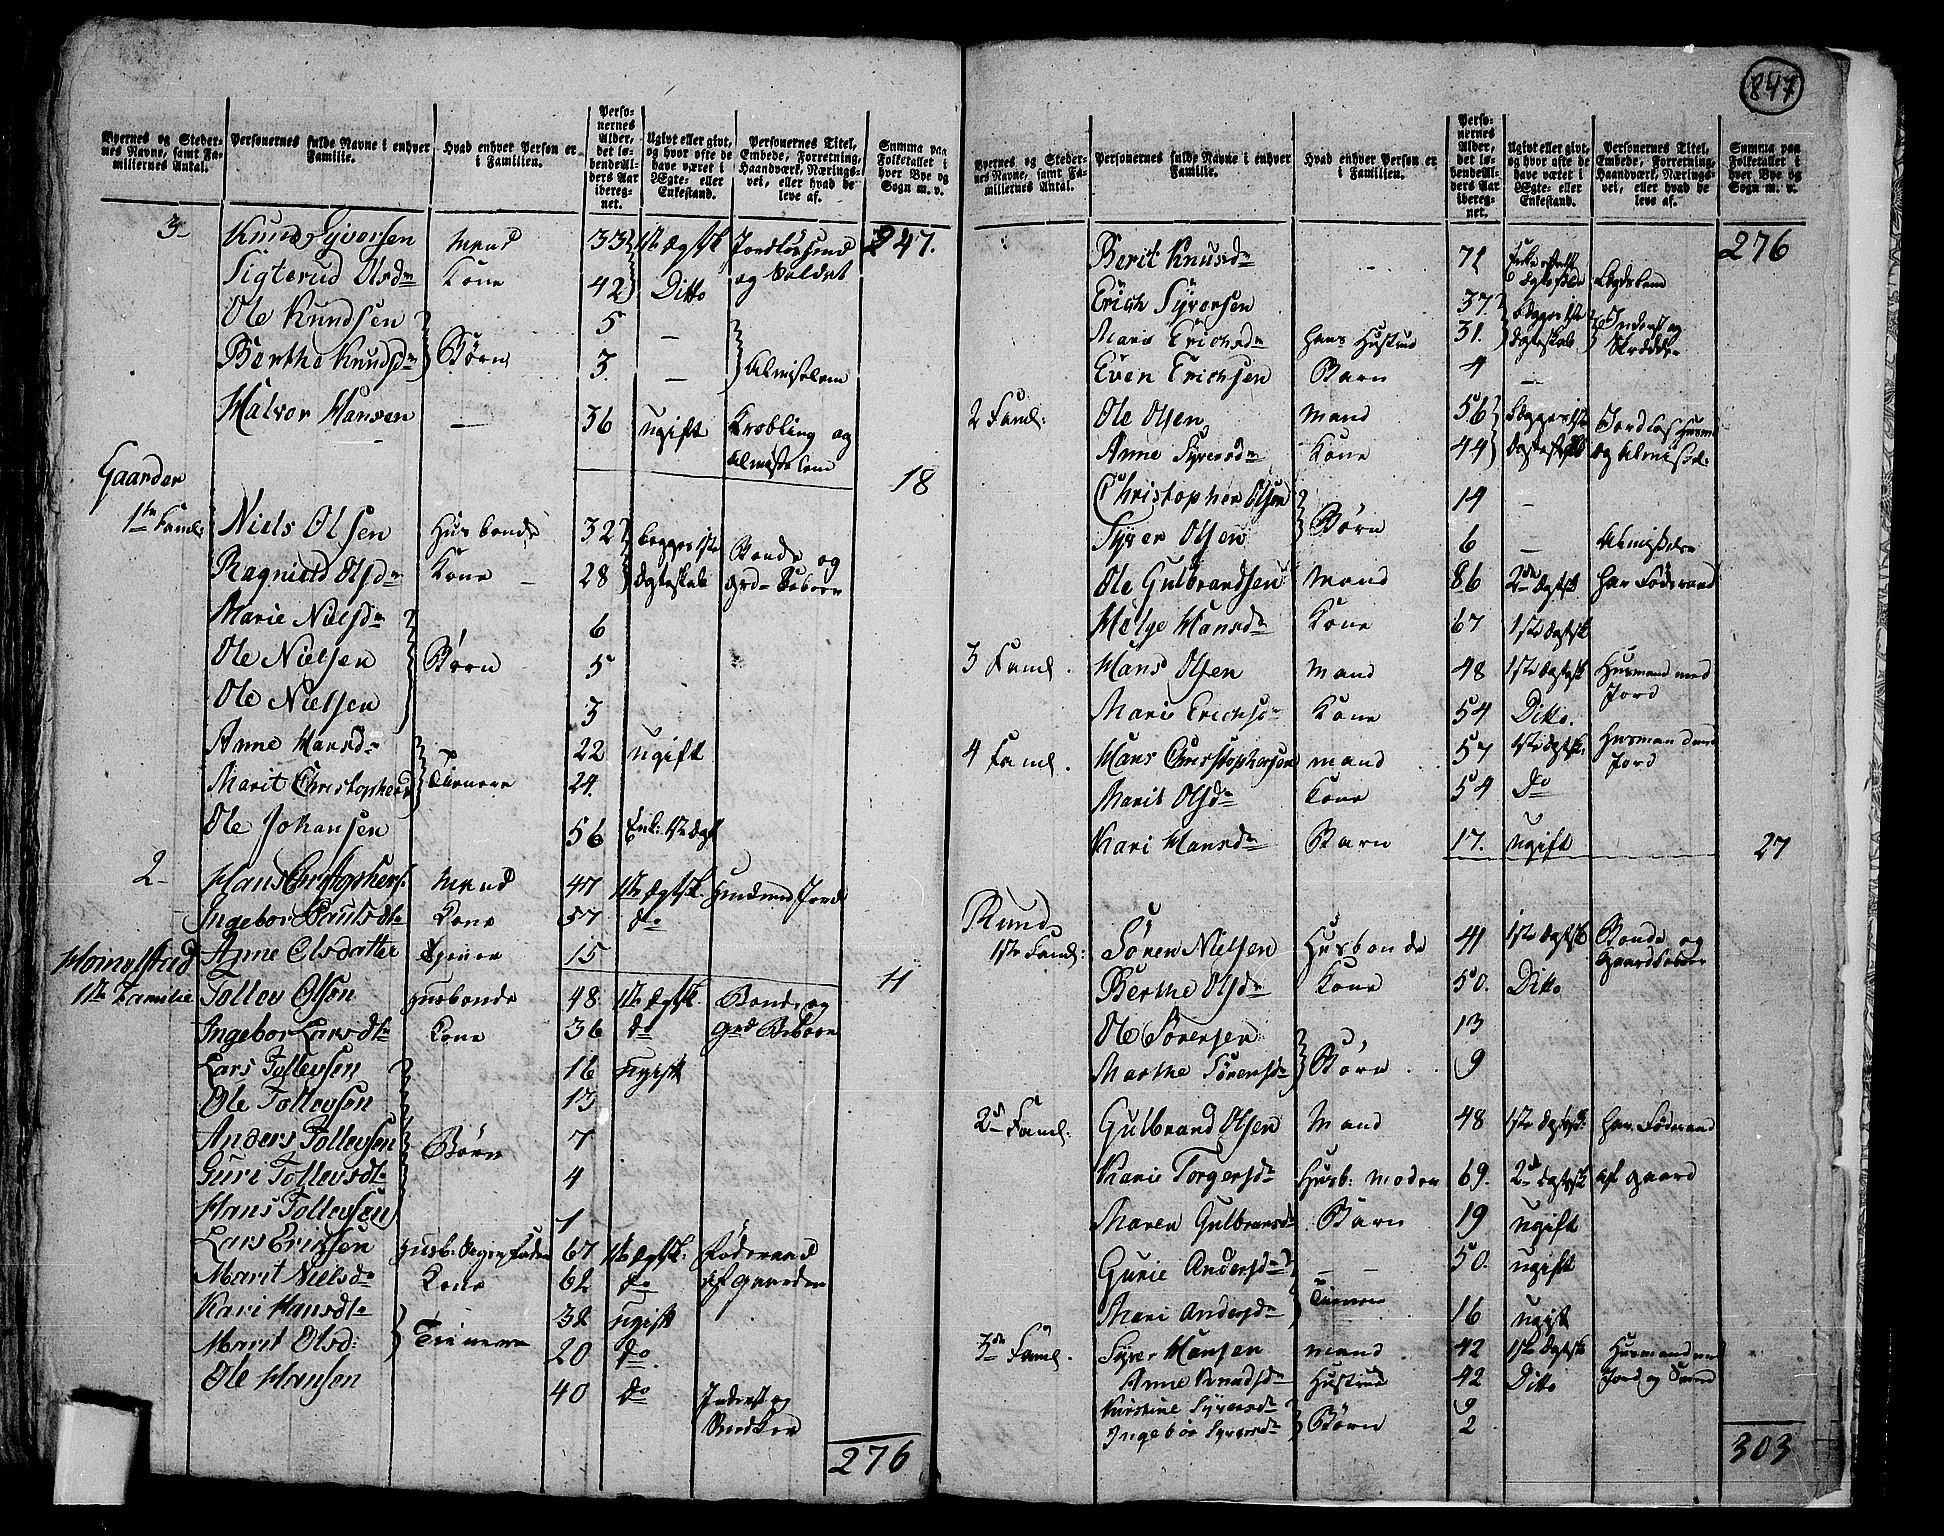 847
Byernes og Steder-
nes Navne, samt Fa-
miliernes Antal.
Personernes fulde Navne i enhver
Familie.
Hvad enhver Person er
i Familien.
Perso-
nernes
Alder,
det lø-
bende Al-
ders Aar
ibereg-
net.
Ugivt eller givt,
og hvor ofte de
have været i
Ægte- eller
Enkestand.
Personernes Titel,
Embede, Forretning,
Haandværk, Nærings-
vei, eller hvad de
leve af.
Summa paa
Folketallet i
hver Bye og
Sogn m. v.
3 Knud Syversen Mand 33 1ste Ægtsk 247.
Sigterud Olsdr Kone 42 Ditto og Soldat
Ole Knudsen 5 —
Berthe Knudsdr Børn 3 —
Halvor Hansen — 36 ugift Krøbling og
Gaarder 18
1ste Faml: Niels Olsen Husbonde 32 begge 1ste Bonde og
Ragnild Olsdr Kone 28 Ægteskab Grd Beboer
Marie Nielsdr 6
Ole Nielsen Børn 5
Ole Nielsen 3
Anne Hansdr 22 ugift
Marit Christophersd Tienere 24.
Ole Johansen 56
2 Hans Christophers: Mand 47 1ste Ægtsk.
Ingebor Paulsdtr Kone 57 do
Anne Olsdatter 15
11
1ste Familie Tollev Olsen Husbonde 48 1ste Ægtsk. Bonde og
Ingebor Larsdtr Kone 36 do Grd Beboer
Lars Tollevsen 16 ugift
Ole Tollevsen 13
Anders Tollevsen Børn 7
Guri Tollevsdtr 4
Hans Tollevsen 1
Lars Erichsen 67 1ste Ægtsk: Føderaad
Marit Nielsdr Kone 62 do af Gaarden
Kari Hansdtr 32 ugift
Marit Olsd: Tienere 20 do
Ole Hansen 40 do Inderst og
276
Byernes og Steder-
nes Navne, samt Fa-
miliernes Antal.
Personernes fulde Navne i enhver
Familie.
Hvad enhver Person er
i Familien.
Perso-
nernes
Alder,
det lø-
bende Al-
ders Aar
ibereg-
net.
Ugivt eller givt,
og hvor ofte de
have været i
Ægte- eller
Enkestand.
Personernes Titel,
Embede, Forretning,
Haandværk, Nærings-
vei, eller hvad de
leve af.
Summa paa
Folketallet i
hver Bye og
Sogn m. v.
276
Berit Knusdr - 71 Lægdslem
Erich Syversen 37. Begge 1ste Inderst og
Marie Erichsdr hans Hustrue 31. Ægteskab
Even Erichsen Barn 4 —
2 Faml: Ole Olsen Mand 56 Begge 1ste Jordløs Husm
Anne Syversdr Kone 44 Ægteskab
Christopher Olsen 14 —
Syver Olsen Børn 6 —
Ole Gulbrandsen Mand 86 2den Ægtsk har Føderaad
Helge Hansdr Kone 67 1ste Ægtsk
3 Faml. Hans Olsen Mand 48 1ste Ægtsk Husmand med
Jord
Marie Erichsdr Kone 54 Ditto.
4 Faml. Hans Christophersen Mand 57 1ste Ægtsk.
Jord
Marit Olsdr Kone 54 Do
Kari Hansdr Barn 17. ugift 27
Rund
1ste Faml: Sören Nielsen Husbonde 41 1ste Ægtsk Bonde og
Gaardbeboer
Berthe Olsdr Kone 50. Ditto
Ole Sörensen 13
Marthe Sörensdr Børn 9
2den Faml: Gulbrand Olsen Mand 48 1ste Ægtsk: har Føderaad
Marie Torgersdr Husb: Moder 69. 2den Ægtsk af Gaard
Maren Gulbransdr Barn 19 ugift
Gurie Andersdr 50. ugift
Mari Andersdr Tienere 16 ugift
3die Faml. Syver Hansen Mand 42 1ste Ægtsk
Anne Knudsdr Hustrue 42 Ditto
Kirstine Syversdr 9
Ingebör Syversdr Børn 2
303